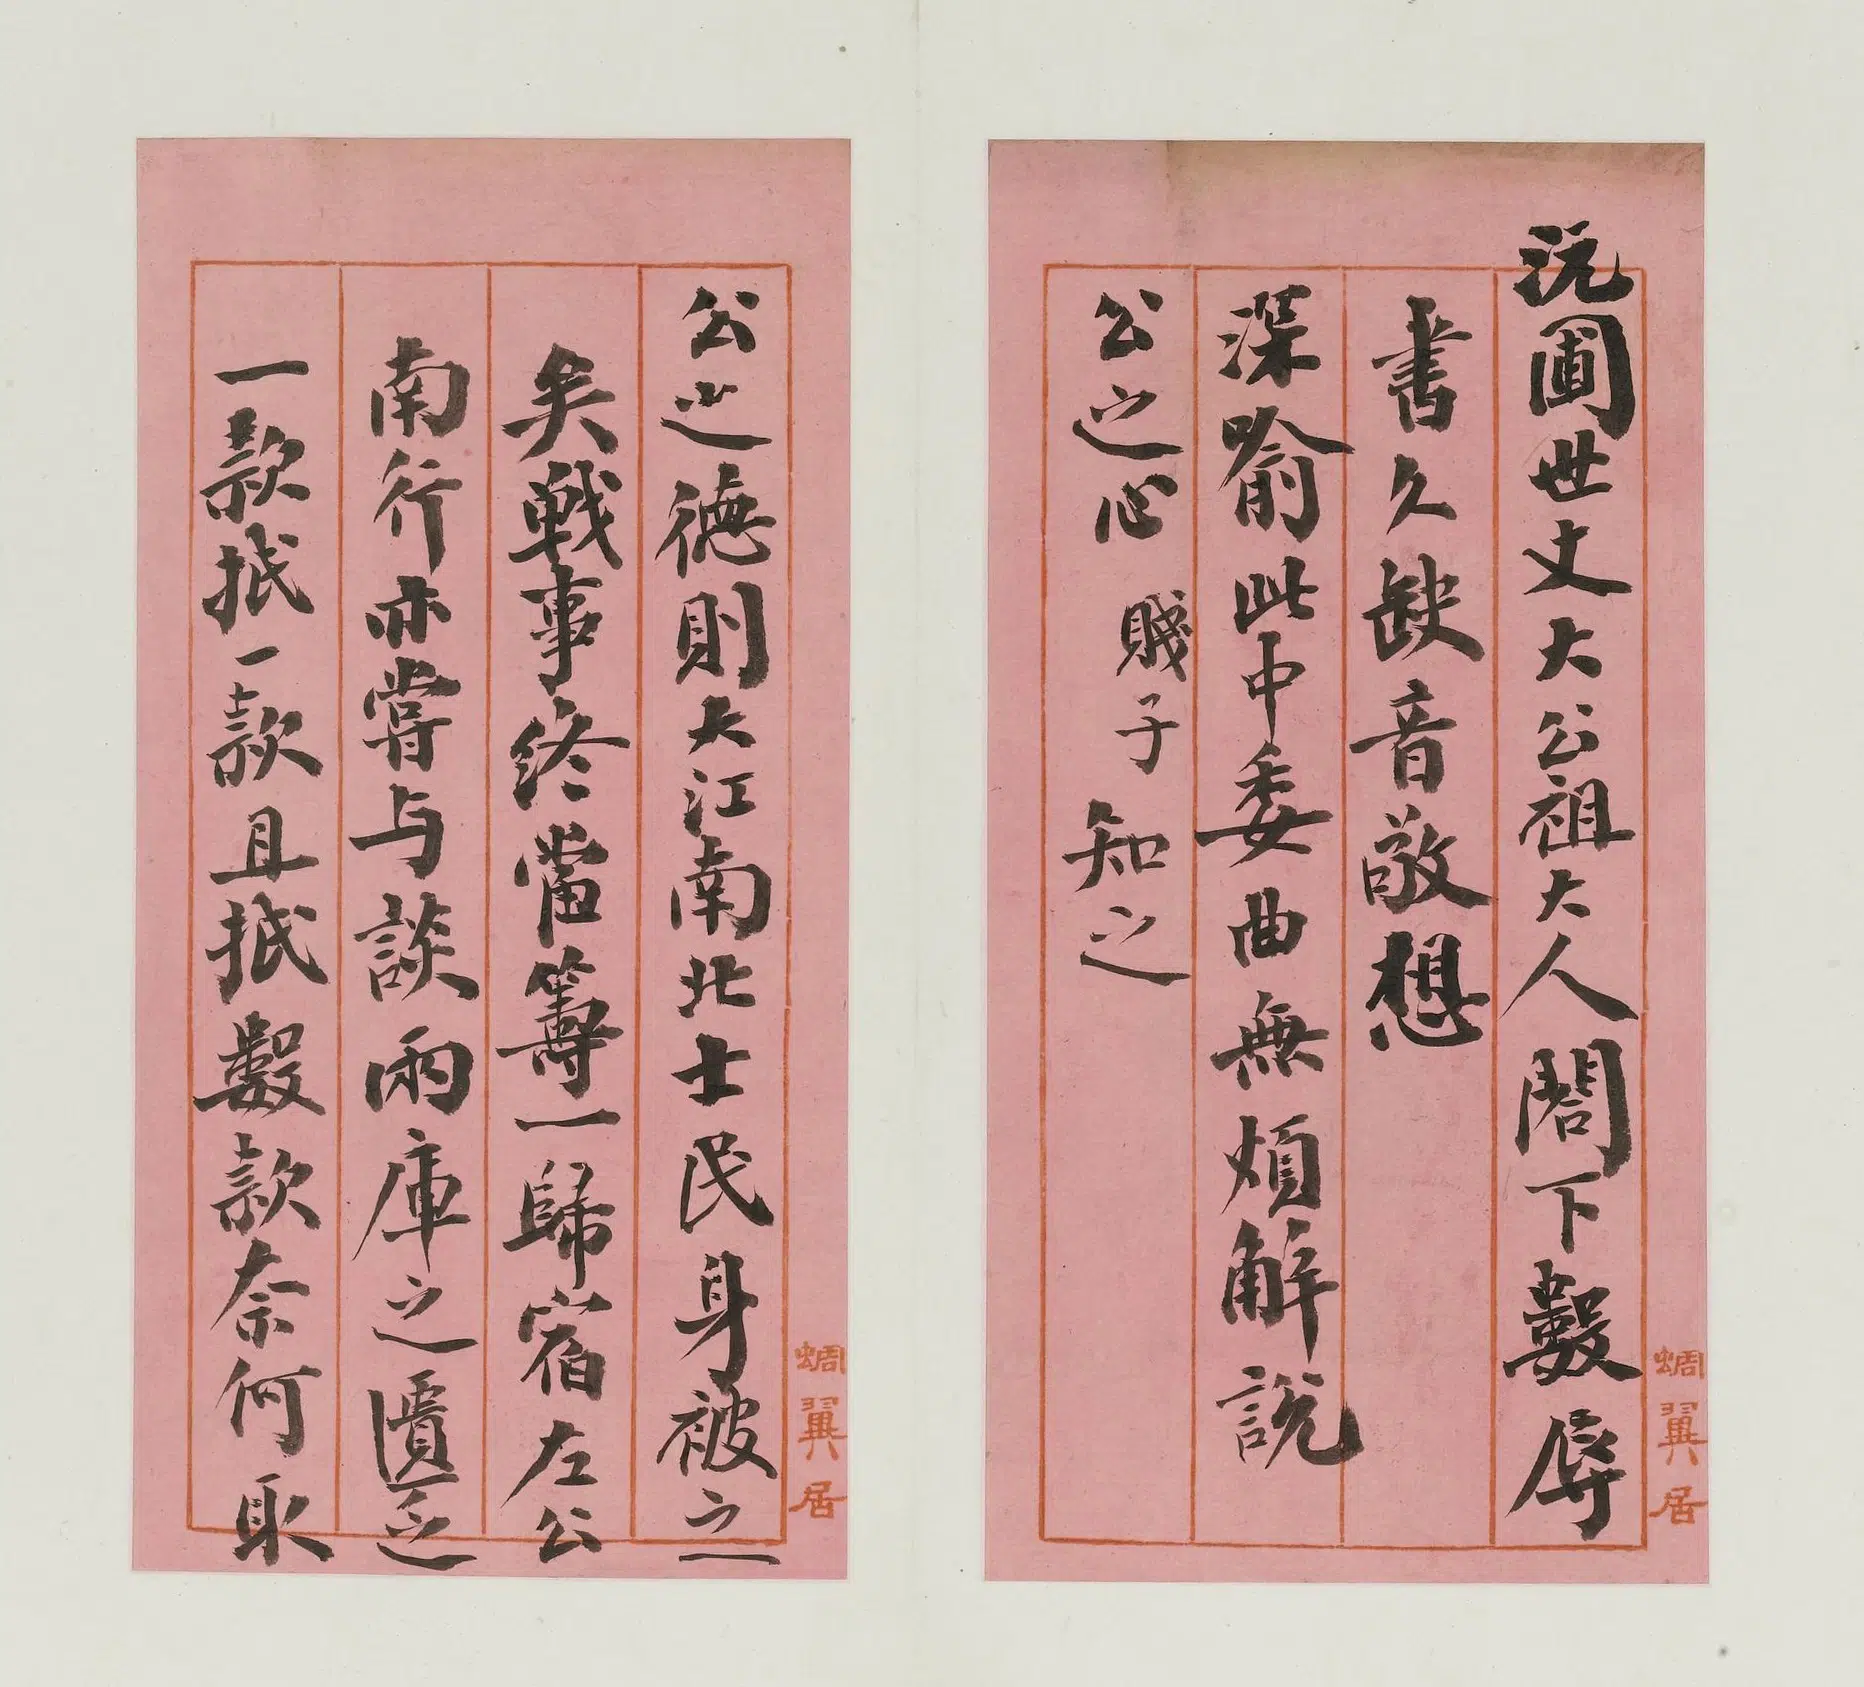 沅圃世丈大公祖大人閣下數辱
書久缺音敬想
深喻此中委曲無煩解說
公之心賤子知之
蜩翼居
公之德則大江南北士民身被之
矣戰事終當籌一歸宿左公
南行亦嘗与談兩庫之匱乏
一款抵一款且抵數款奈何取
蜩翼居